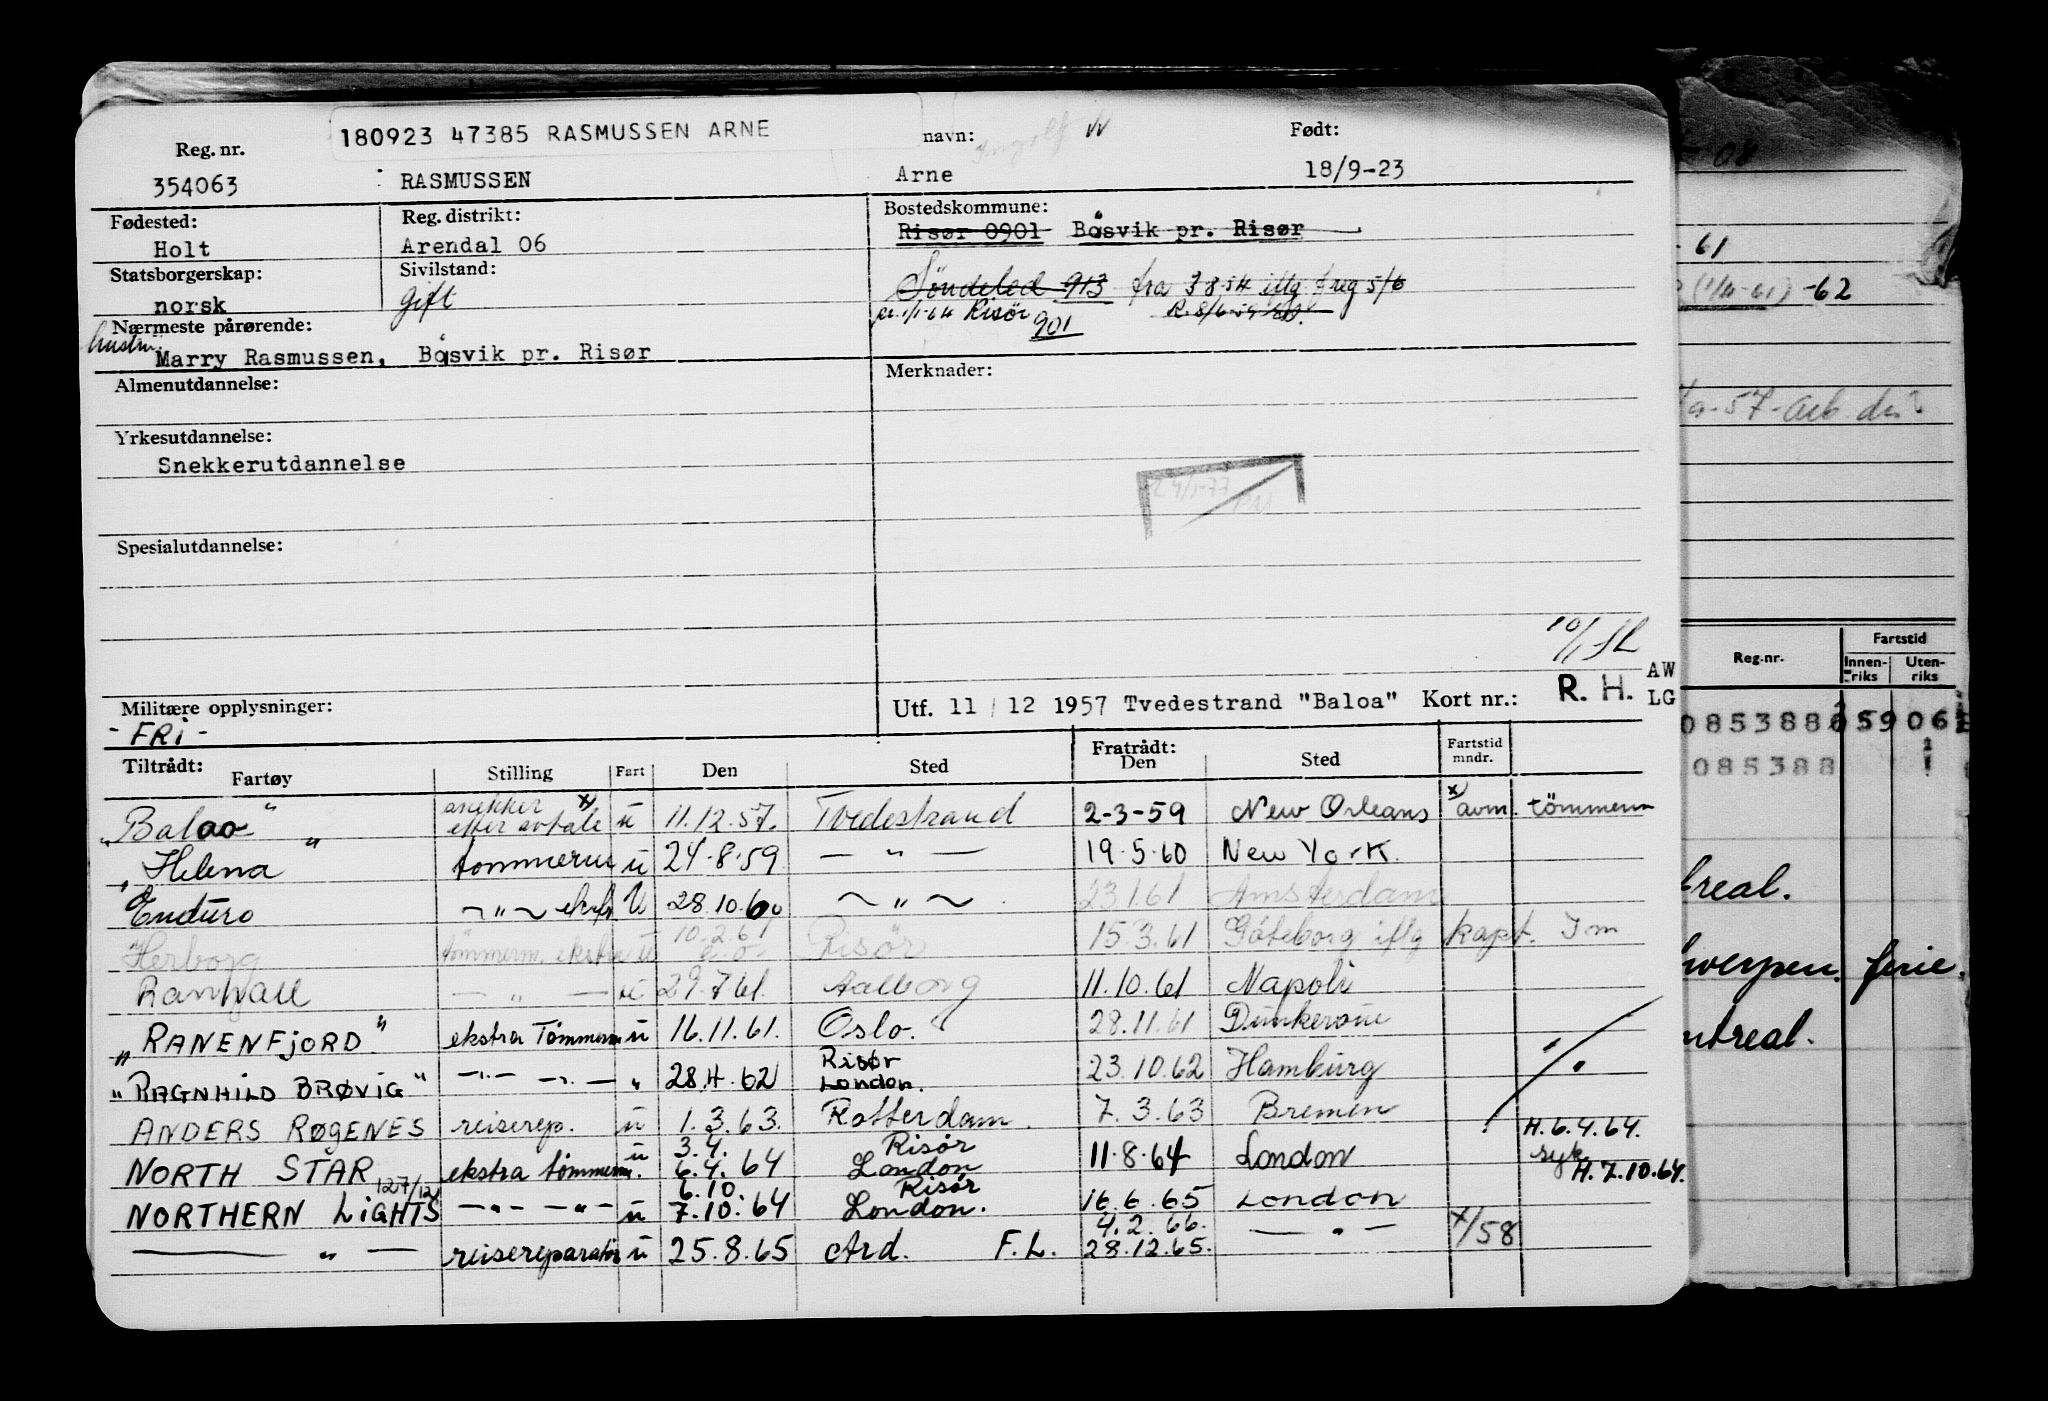 180923 47385 RASMUSSEN ARNE
Reg. nr. navn: Ingolf W Født:
354063 RASMUSSEN Arne 18/9-23
Fødested: Reg. distrikt: Bostedskommune:
Holt Arendal 06 Risør 0901 Båsvik pr. Risør
Statsborgerskap: Sivilstand: Söndeled 913 fra 3-8-54 iflg. freg 5/6
norsk gift 1/1-64 Risør 901 R. 8/6-59
Nærmeste pårørende:
hustru Marry Rasmussen, Båsvik pr. Risør
Almenutdannelse: Merknader:
Yrkesutdannelse:
Snekkerutdannelse
Spesialutdannelse:
10/1 SL
AW
Militære opplysninger: Utf. 11 / 12 1957 Tvedestrand "Baloa" Kort nr.: R. H. LG
- FRI -
Tiltrådt: Fartøy Stilling Fart Den Sted Fratrådt: Den Sted Fartstid mndr.
"Balao" snekker x) efter avtale u 11.12.57. Tvedestrand 2-3-59 New Orleans x) avm. tömmerm
"Helena" tømmerm u 24.8.59 — " — 19.5.60 New York.
Enduro ~ " ~ ekstr U 28.10.60 ~ " ~ 23.1.61 Amsterdam
Herborg tömmerm. ekstra u 10.2.61 Risör 15.3.61 Göteborg iflg kapt. Im
Ranvall — " — u 29.7.61. Aalborg 11.10.61 Napoli
"RANENFJORD" ekstra Tømmerm u 16.11.61. Oslo. 28.11.61 Dunkerque
"RAGNHILD BRØVIG" —"— —"— " 28.4.62 Risør London. 23.10.62 Hamburg
ANDERS RØGENES reiserep. u 1.3.63. Rotterdam. 7.3.63 Bremen
NORTH STAR ekstra tømmerm. u 3.4. 6.4.64 Risør London 11.8.64 London H.6.4.64. syk
NORTHERN LIGHTS 127/12 —"— —"— u 6.10. 7.10.64 Risør London. 16.6.65 London H.7.10.64.
— " — reisereparatør u 25.8.65 Ard. F.L. 4.2.66. 28.12.65. — " — x/58
08
61
(1/11-61) -62
-57-arb
Reg.nr. Fartstid
Innen-riks Uten-riks
0853888 059 06
085388
treal.
werpen. ferie.
ntreal.